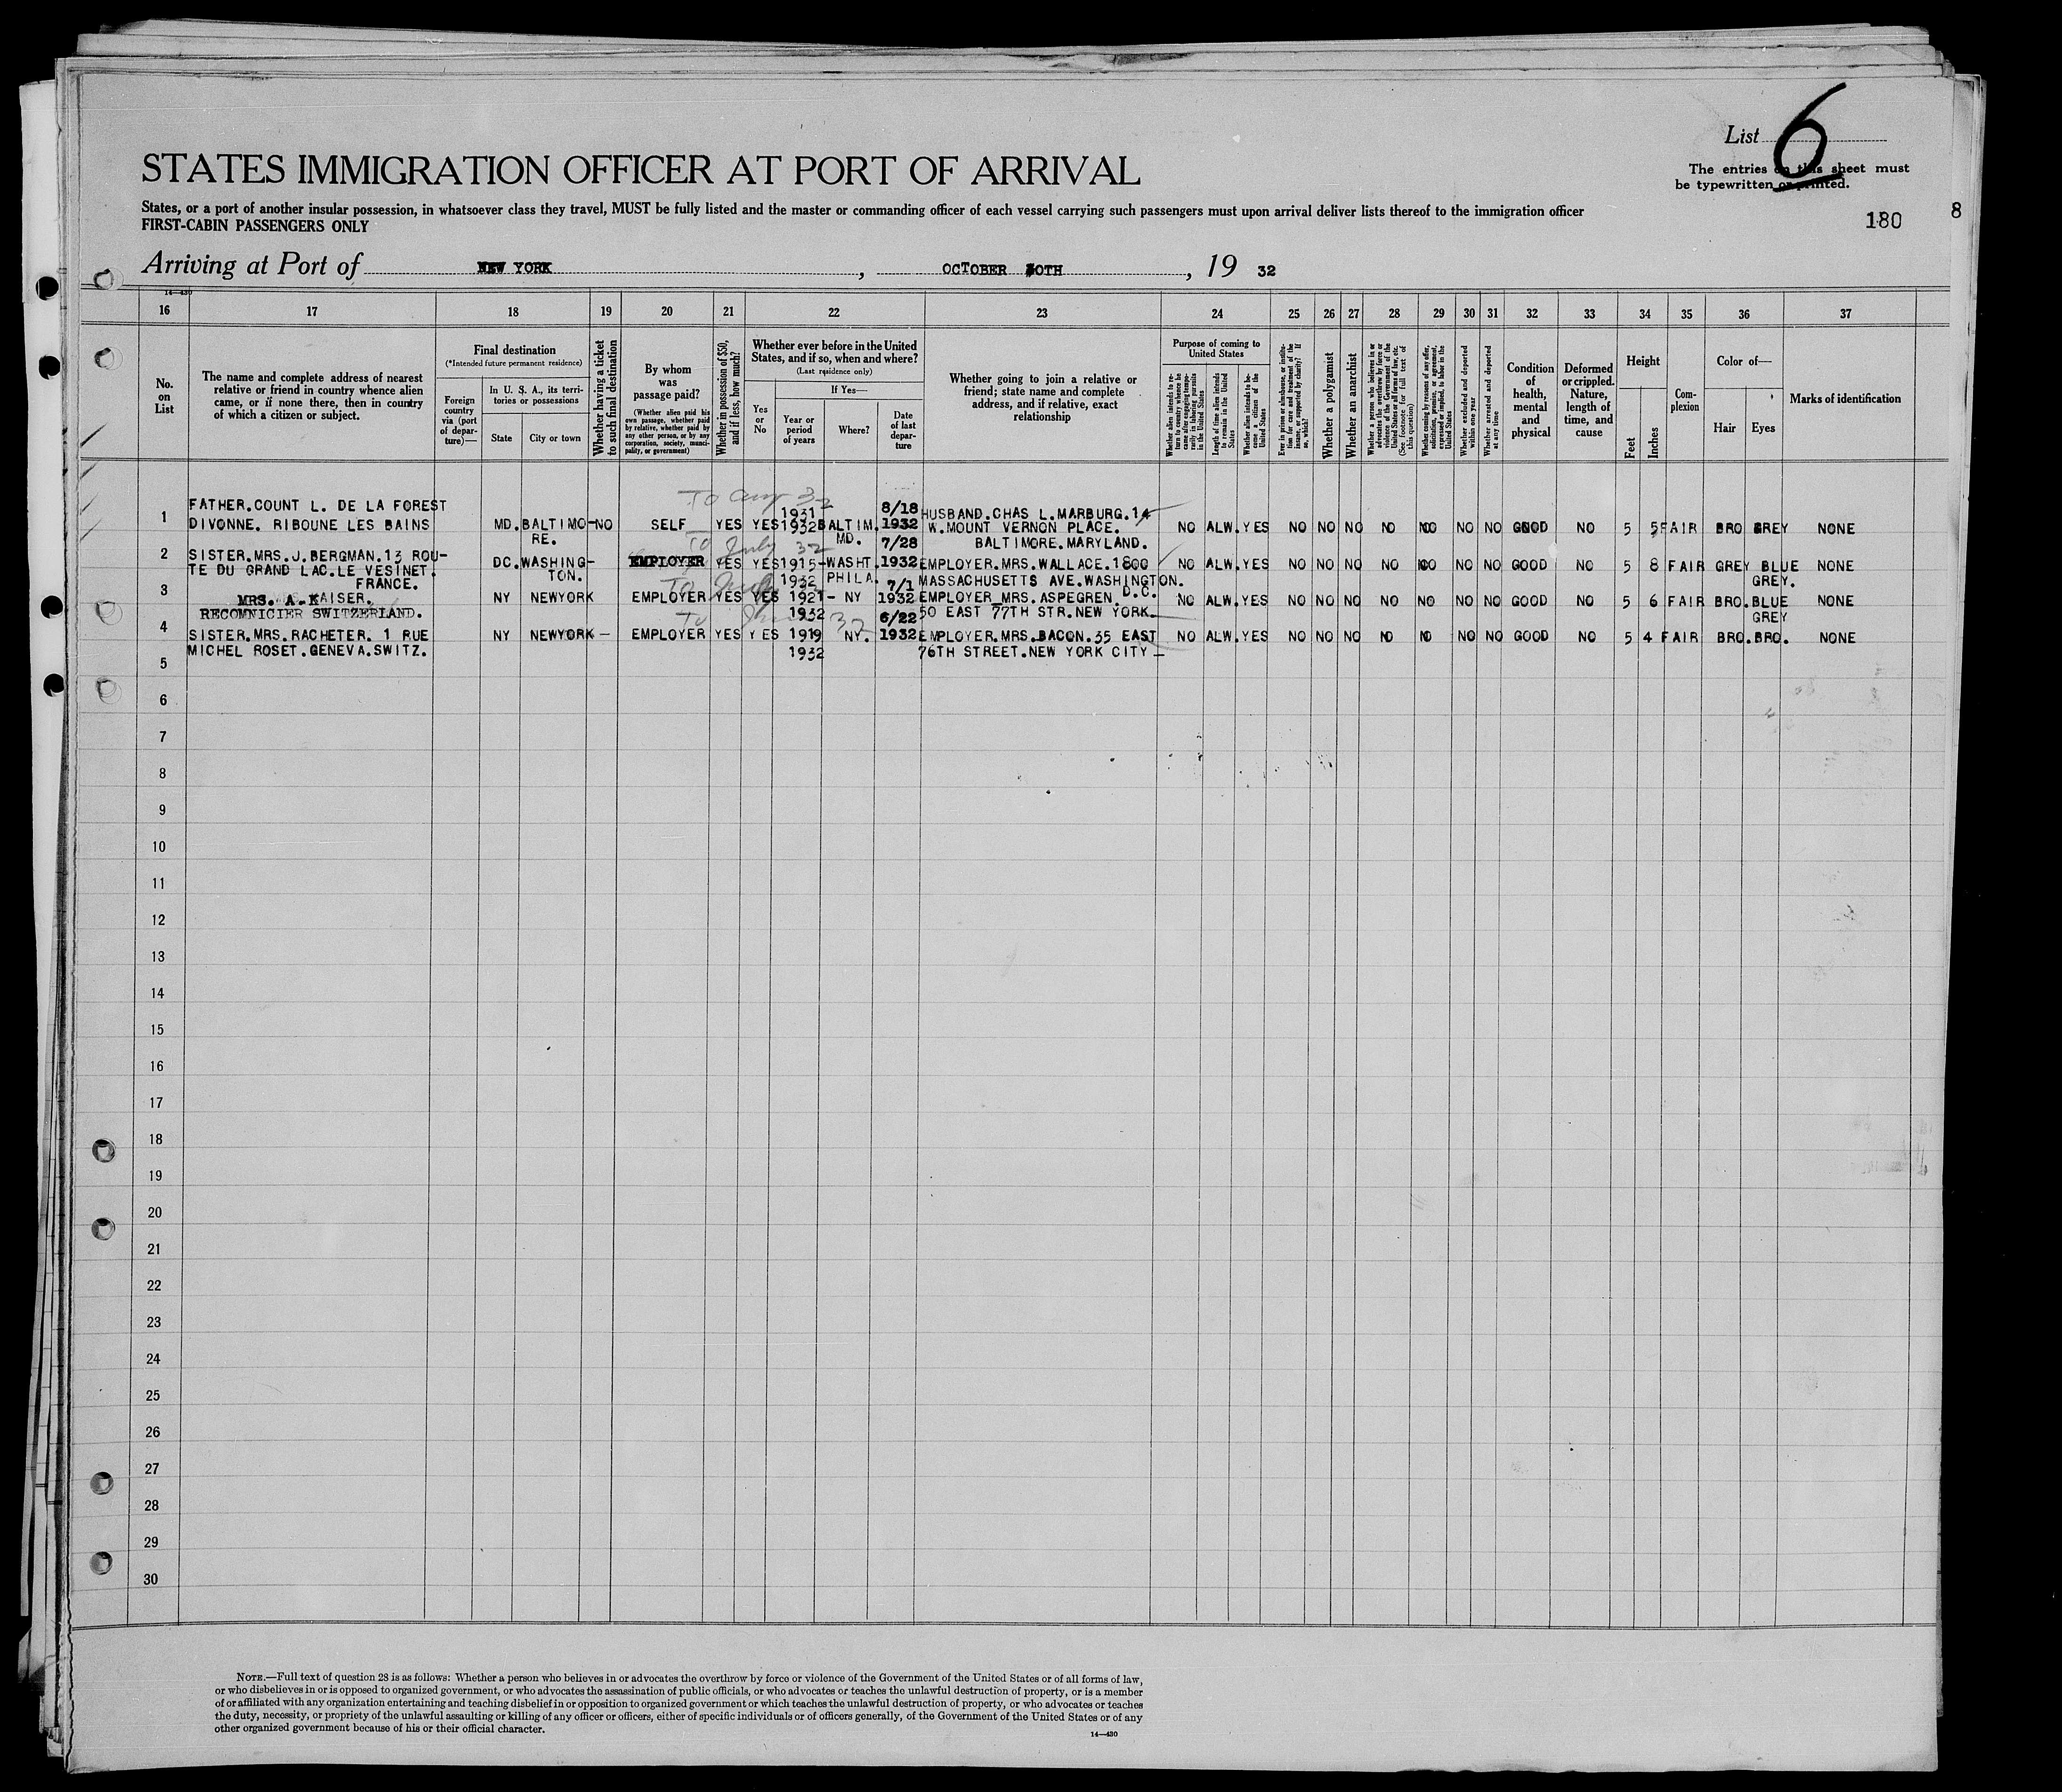 List 6
The entries on this sheet must
be typewritten or printed.
STATES IMMIGRATION OFFICER AT PORT OF ARRIVAL
States, or a port of another insular possession, in whatsoever class they travel, MUST be fully listed and the master or commanding officer of each vessel carrying such passengers must upon arrival deliver lists thereof to the immigration officer
FIRST-CABIN PASSENGERS ONLY
180
8
Arriving at Port of NEW YORK, OCTOBER OTH, 19 32
14—430
16 17 18 19 20 21 22 23 24 25 26 27 28 29 30 31 32 33 34 35 36 37
No. on List
The name and complete address of nearest relative or friend in country whence alien came, or if none there, then in country of which a citizen or subject.
Final destination
(*Intended future permanent residence)
Foreign country via (port of departure)—
In U. S. A., its territories or possessions
State
City or town
Whether having a ticket to such final destination
By whom was passage paid?
(Whether alien paid his own passage, whether paid by relative, whether paid by any other person, or by any corporation, society, municipality, or government)
Whether in possession of $50, and if less, how much?
Whether ever before in the United States, and if so, when and where?
(Last residence only)
Yes or No
If Yes—
Year or period of years
Where?
Date of last departure
Whether going to join a relative or friend; state name and complete address, and if relative, exact relationship
Purpose of coming to United States
Whether alien intends to return to country whence he came after engaging temporarily in laboring pursuits in the United States
Length of time alien intends to remain in the United States
Whether alien intends to become a citizen of the United States
Ever in prison or almshouse, or institution for care and treatment of the insane, or supported by charity? If so, which?
Whether a polygamist
Whether an anarchist
Whether a person who believes in or advocates the overthrow by force or violence of the Government of the United States or all forms of law, etc. (See footnote for full text of this question)
Whether coming by reason of any offer, solicitation, promise, or agreement, expressed or implied, to labor in the United States
Whether excluded and deported within one year
Whether arrested and deported at any time
Condition of health, mental and physical
Deformed or crippled. Nature, length of time, and cause
Height
Feet
Inches
Complexion
Color of—
Hair
Eyes
Marks of identification
To Aug 32
1 FATHER.COUNT L. DE LA FOREST 1931 8/18 HUSBAND.CHAS L.MARBURG.14
DIVONNE. RIBOUNE LES BAINS MD. BALTIMO- NO SELF YES YES 1932 BALTIM. 1932 W.MOUNT VERNON PLACE. NO ALW. YES NO NO NO NO NO NO NO GOOD NO 5 5 FAIR BRO GREY NONE
RE. MD. BALTIMORE.MARYLAND.
To July 32
2 SISTER.MRS.J.BERGMAN.13 ROU- DC. WASHING- EMPLOYER YES YES 1915- WASHT. 7/28 1932 EMPLOYER.MRS.WALLACE.1800 NO ALW. YES NO NO NO NO NO NO NO GOOD NO 5 8 FAIR GREY BLUE NONE
TE DU GRAND LAC.LE VESINET. TON. 1932 PHILA. MASSACHUSETTS AVE.WASHINGTON. GREY.
FRANCE. D.C.
3 MRS. A. KAISER. NY NEWYORK EMPLOYER YES YES 1921- NY 7/1 1932 EMPLOYER MRS.ASPEGREN. NO ALW. YES NO NO NO NO NO NO NO GOOD NO 5 6 FAIR BRO. BLUE NONE
RECOMNICIER SWITZERLAND. 1932 50 EAST 77TH STR.NEW YORK GREY
4 SISTER.MRS.RACHETER. 1 RUE NY NEWYORK — EMPLOYER YES YES 1919 NY. 6/22 1932 EMPLOYER.MRS.BACON.35 EAST NO ALW. YES NO NO NO NO NO NO NO GOOD NO 5 4 FAIR BRO. BRO. NONE
MICHEL ROSET.GENEVA.SWITZ. 1932 76TH STREET.NEW YORK CITY
5
6
7
8
9
10
11
12
13
14
15
16
17
18
19
20
21
22
23
24
25
26
27
28
29
30
NOTE.—Full text of question 28 is as follows: Whether a person who believes in or advocates the overthrow by force or violence of the Government of the United States or of all forms of law,
or who disbelieves in or is opposed to organized government, or who advocates the assassination of public officials, or who advocates or teaches the unlawful destruction of property, or is a member
of or affiliated with any organization entertaining and teaching disbelief in or opposition to organized government or which teaches the unlawful destruction of property, or who advocates or teaches
the duty, necessity, or propriety of the unlawful assaulting or killing of any officer or officers, either of specific individuals or of officers generally, of the Government of the United States or of any
other organized government because of his or their official character.
14—430